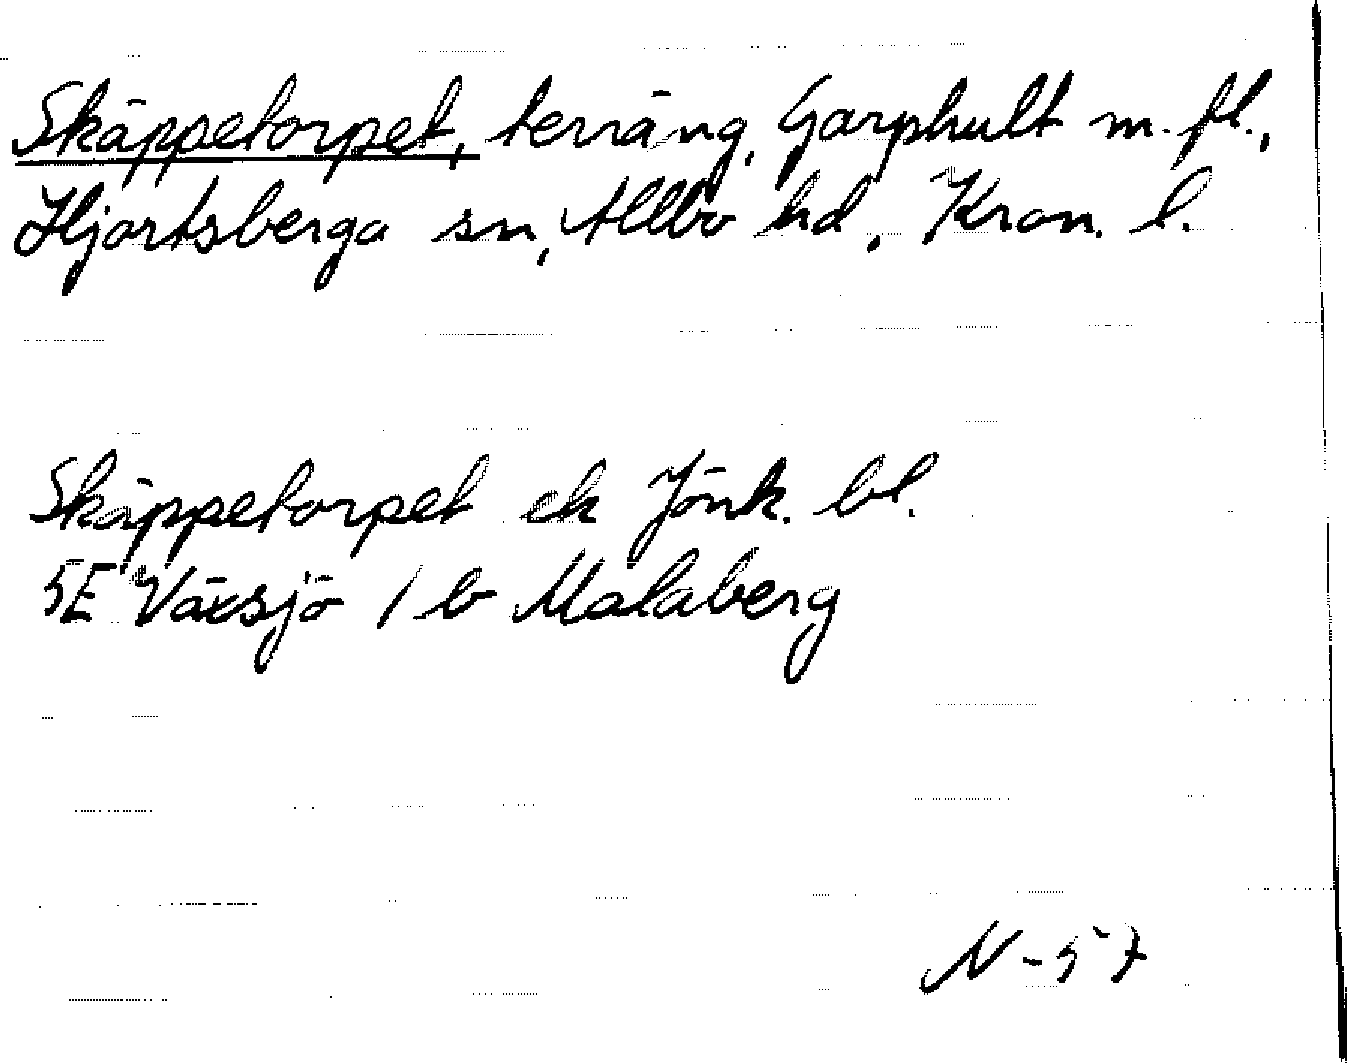 Skäppetorpet, terräng, Garphult m. fl.,
Hjortsberga sn, Allbo hd, Kron. l.
Skäppetorpet ek Jönk. bl.
5E Växsjö 1 b Malaberg
N-57